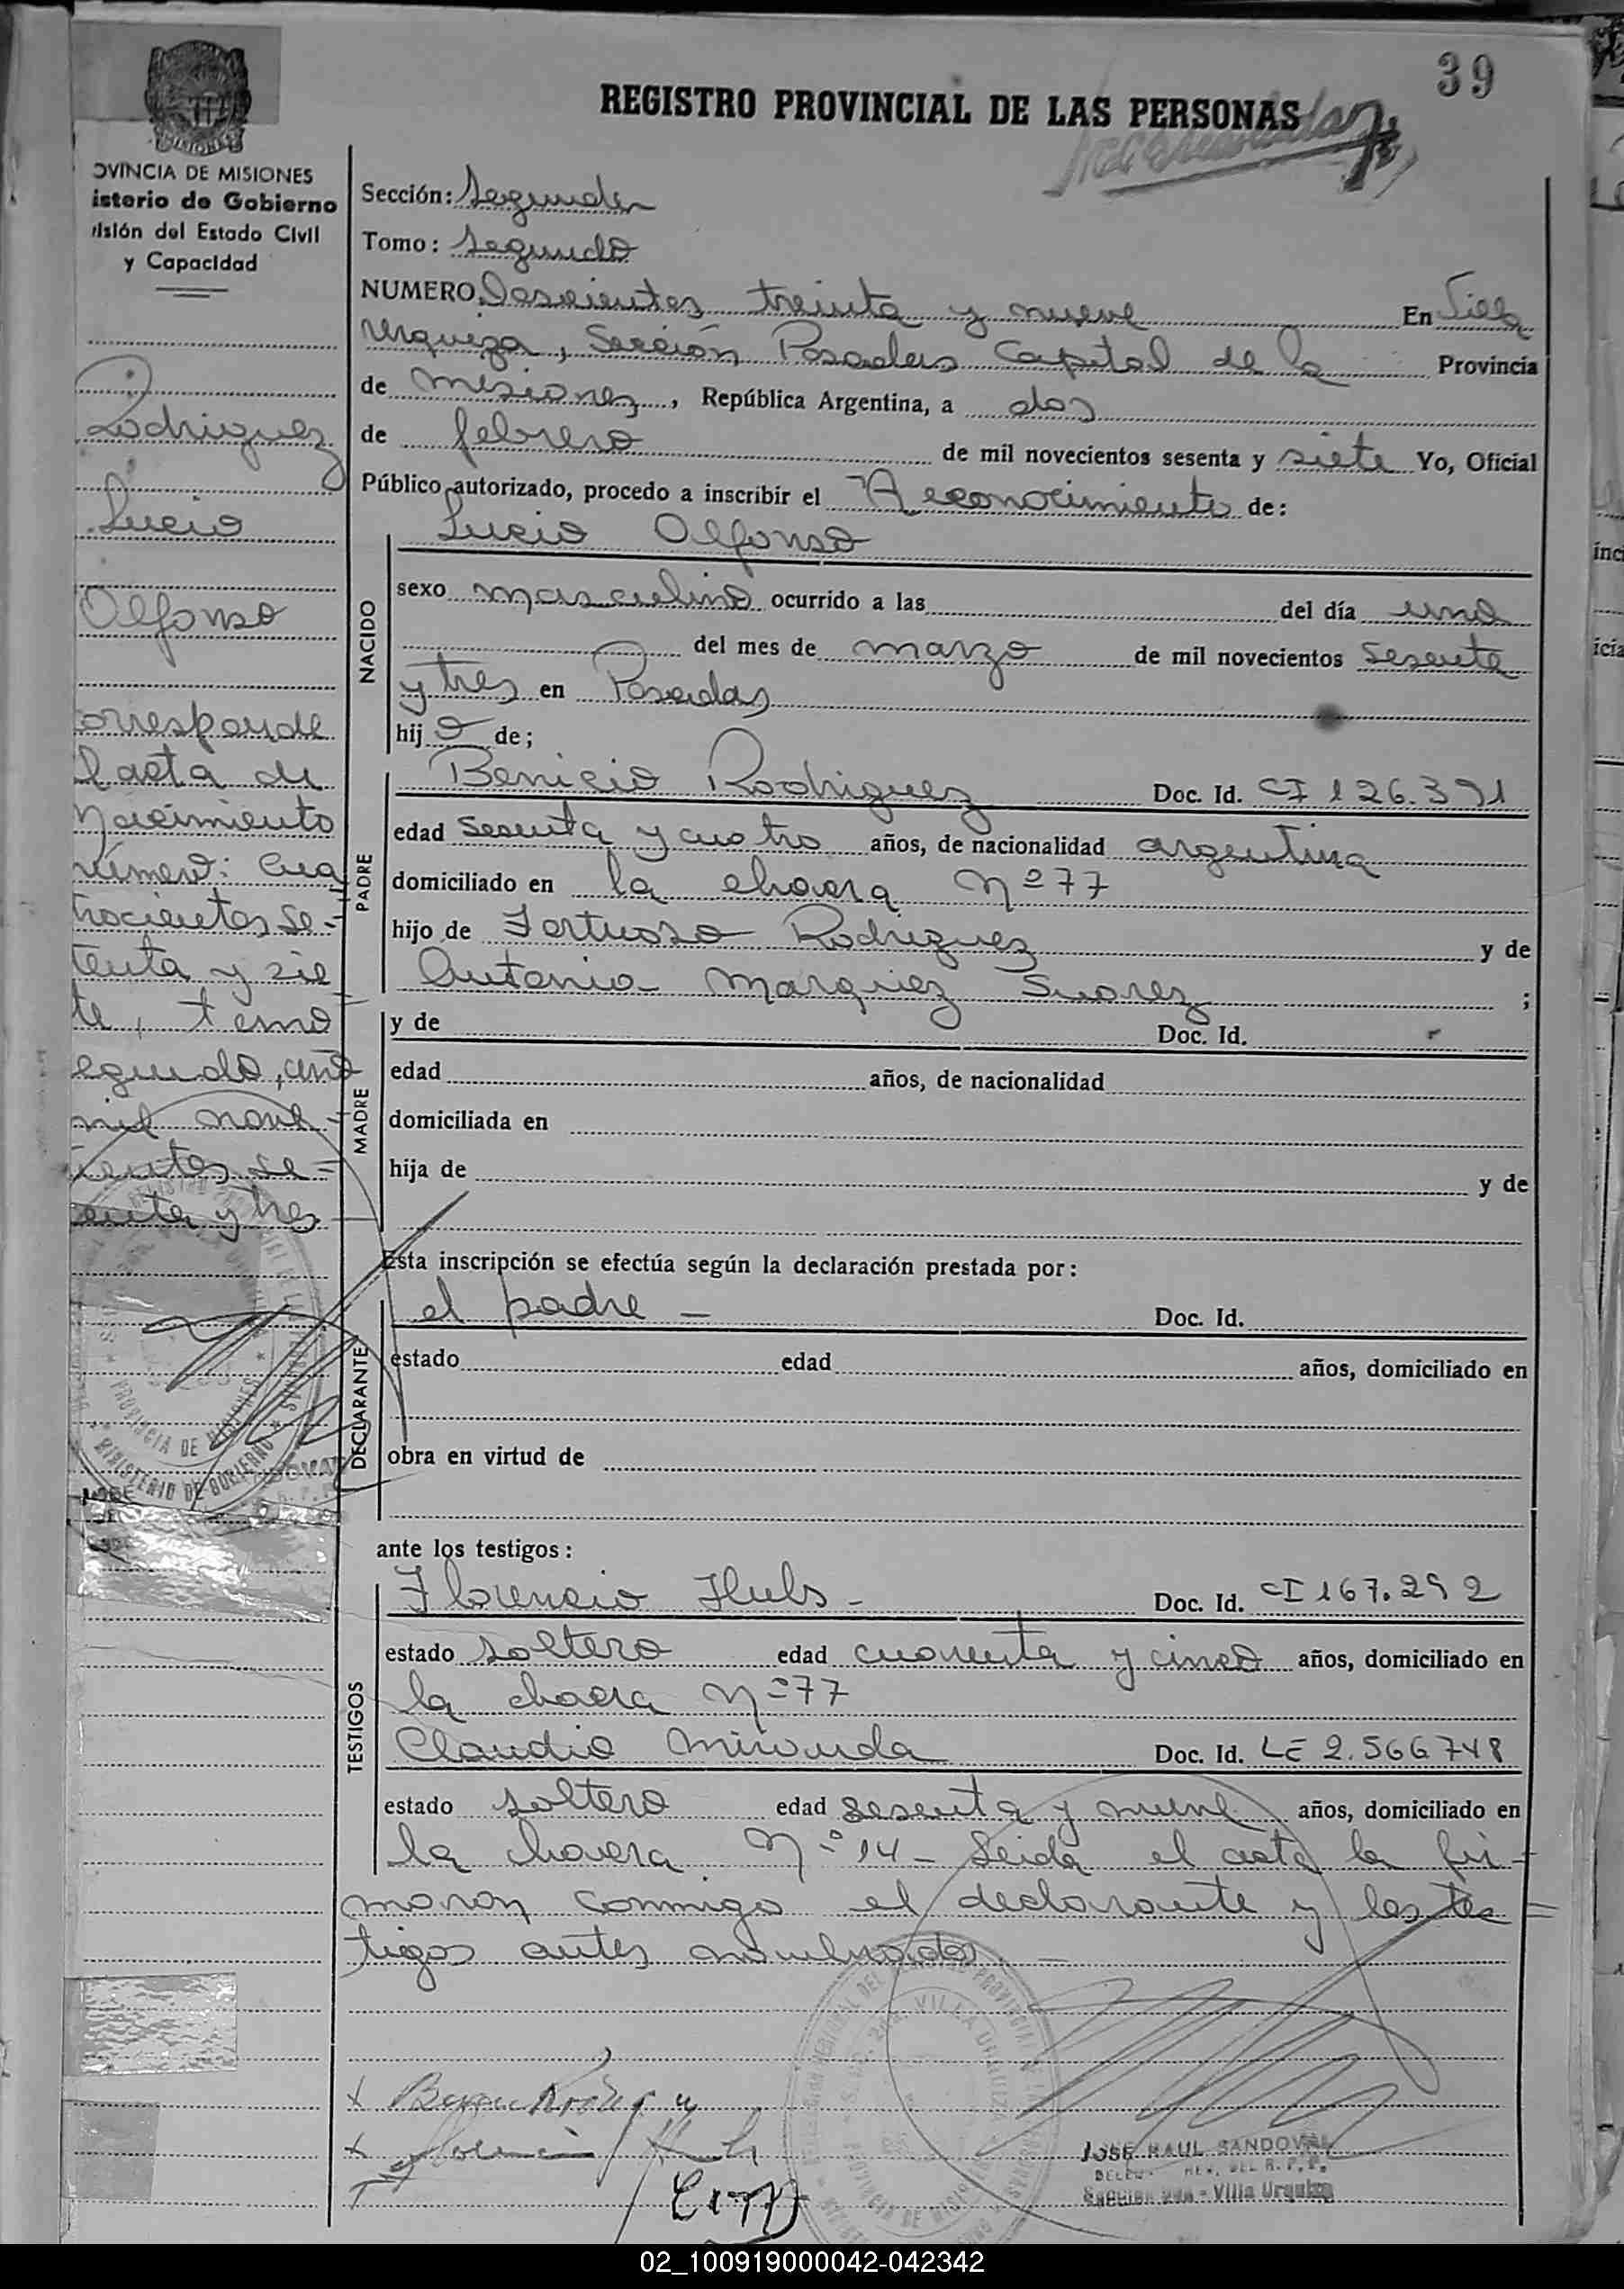 39
REGISTRO PROVINCIAL DE LAS PERSONAS
MISIONES
OVINCIA DE MISIONES
isterio de Gobierno
visión del Estado Civil
y Capacidad
Rodriguez
Lucio
Alfonso
orresponde
l acta de
nacimiento
número: Cua
trocientos se-
tenta y sie
te, tomo
egundo, año
mil nove-
cientos se=
senta y tres
Sección: Segunda
Tomo: Segundo
NUMERO Doscientos treinta y nueve En Villa
Urquiza, Sección Posadas Capital de la Provincia
de Misiones, República Argentina, a dos
de febrero de mil novecientos sesenta y siete Yo, Oficial
Público autorizado, procedo a inscribir el Reconocimiento de:
Lucio Alfonso
NACIDO
sexo masculino ocurrido a las del día uno
del mes de marzo de mil novecientos sesenta
y tres en Posadas
hijo de;
PADRE
Benicio Rodriguez Doc. Id. CI 126.391
edad sesenta y cuatro años, de nacionalidad argentina
domiciliado en la chacra Nº 77
hijo de Fortuoso Rodriguez y de
Antonia Marquez Suarez ;
MADRE
y de Doc. Id.
edad años, de nacionalidad
domiciliada en
hija de y de
Esta inscripción se efectúa según la declaración prestada por:
DECLARANTE
el padre - Doc. Id.
estado edad años, domiciliado en
obra en virtud de
ante los testigos:
TESTIGOS
Florencio Hubs - Doc. Id. CI 167.292
estado soltero edad cuarenta y cinco años, domiciliado en
la chacra Nº 77
Claudio Miranda Doc. Id. LE 2.566748
estado soltero edad sesenta y nueve años, domiciliado en
la chacra Nº 14 - Leida el acta la fir-
maron conmigo el declarante y los tes=
tigos antes nombrados -
PROVINCIA DE MISIONES
MINISTERIO DE GOBIERNO
VILLA URQUIZA
JOSE RAUL SANDOVAL
DEL R. P. P.
Sección 2da - Villa Urquiza
02_100919000042-042342